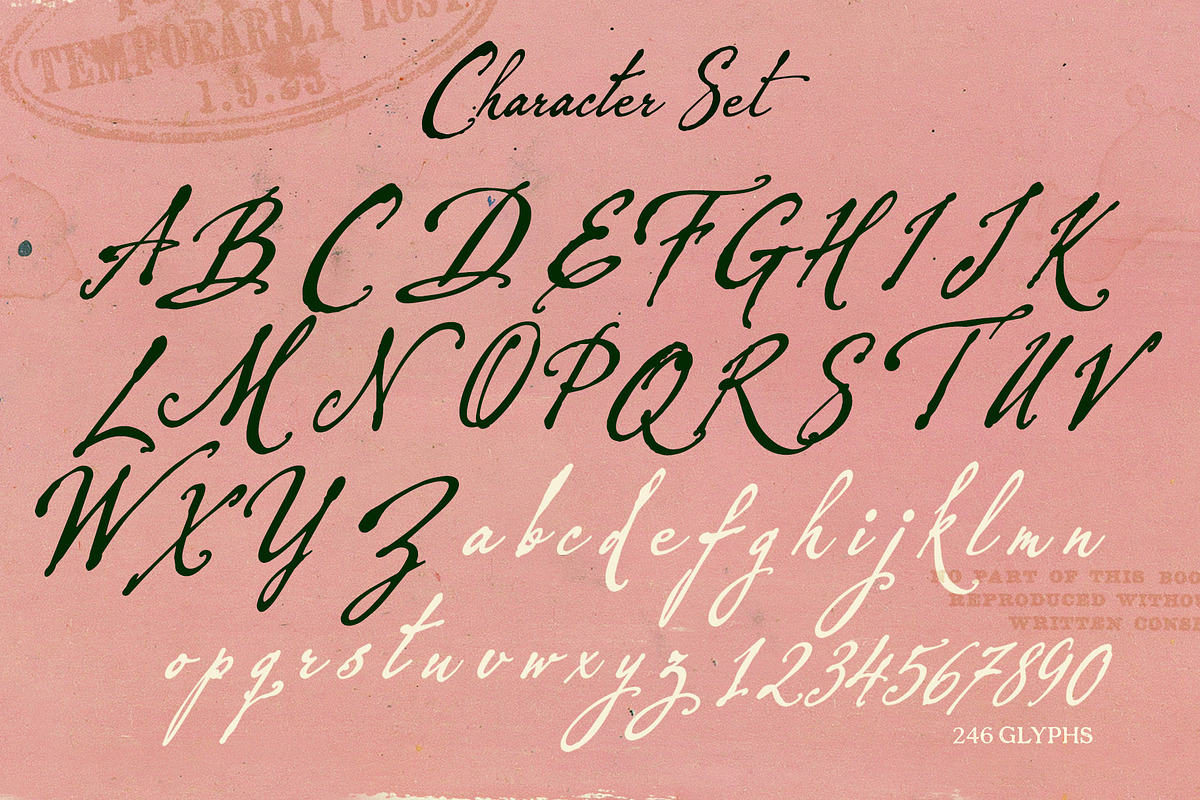 TEMPORARILY LOST
1.9.35
Character Set
A B C D E F G H I J K
L M N O P Q R S T U V
W X Y Z a b c d e f g h i j k l m n
NO PART OF THIS BOO
REPRODUCED WITHOU
WRITTEN CONSE
o p q r s t u v w x y z 1 2 3 4 5 6 7 8 9 0
246 GLYPHS